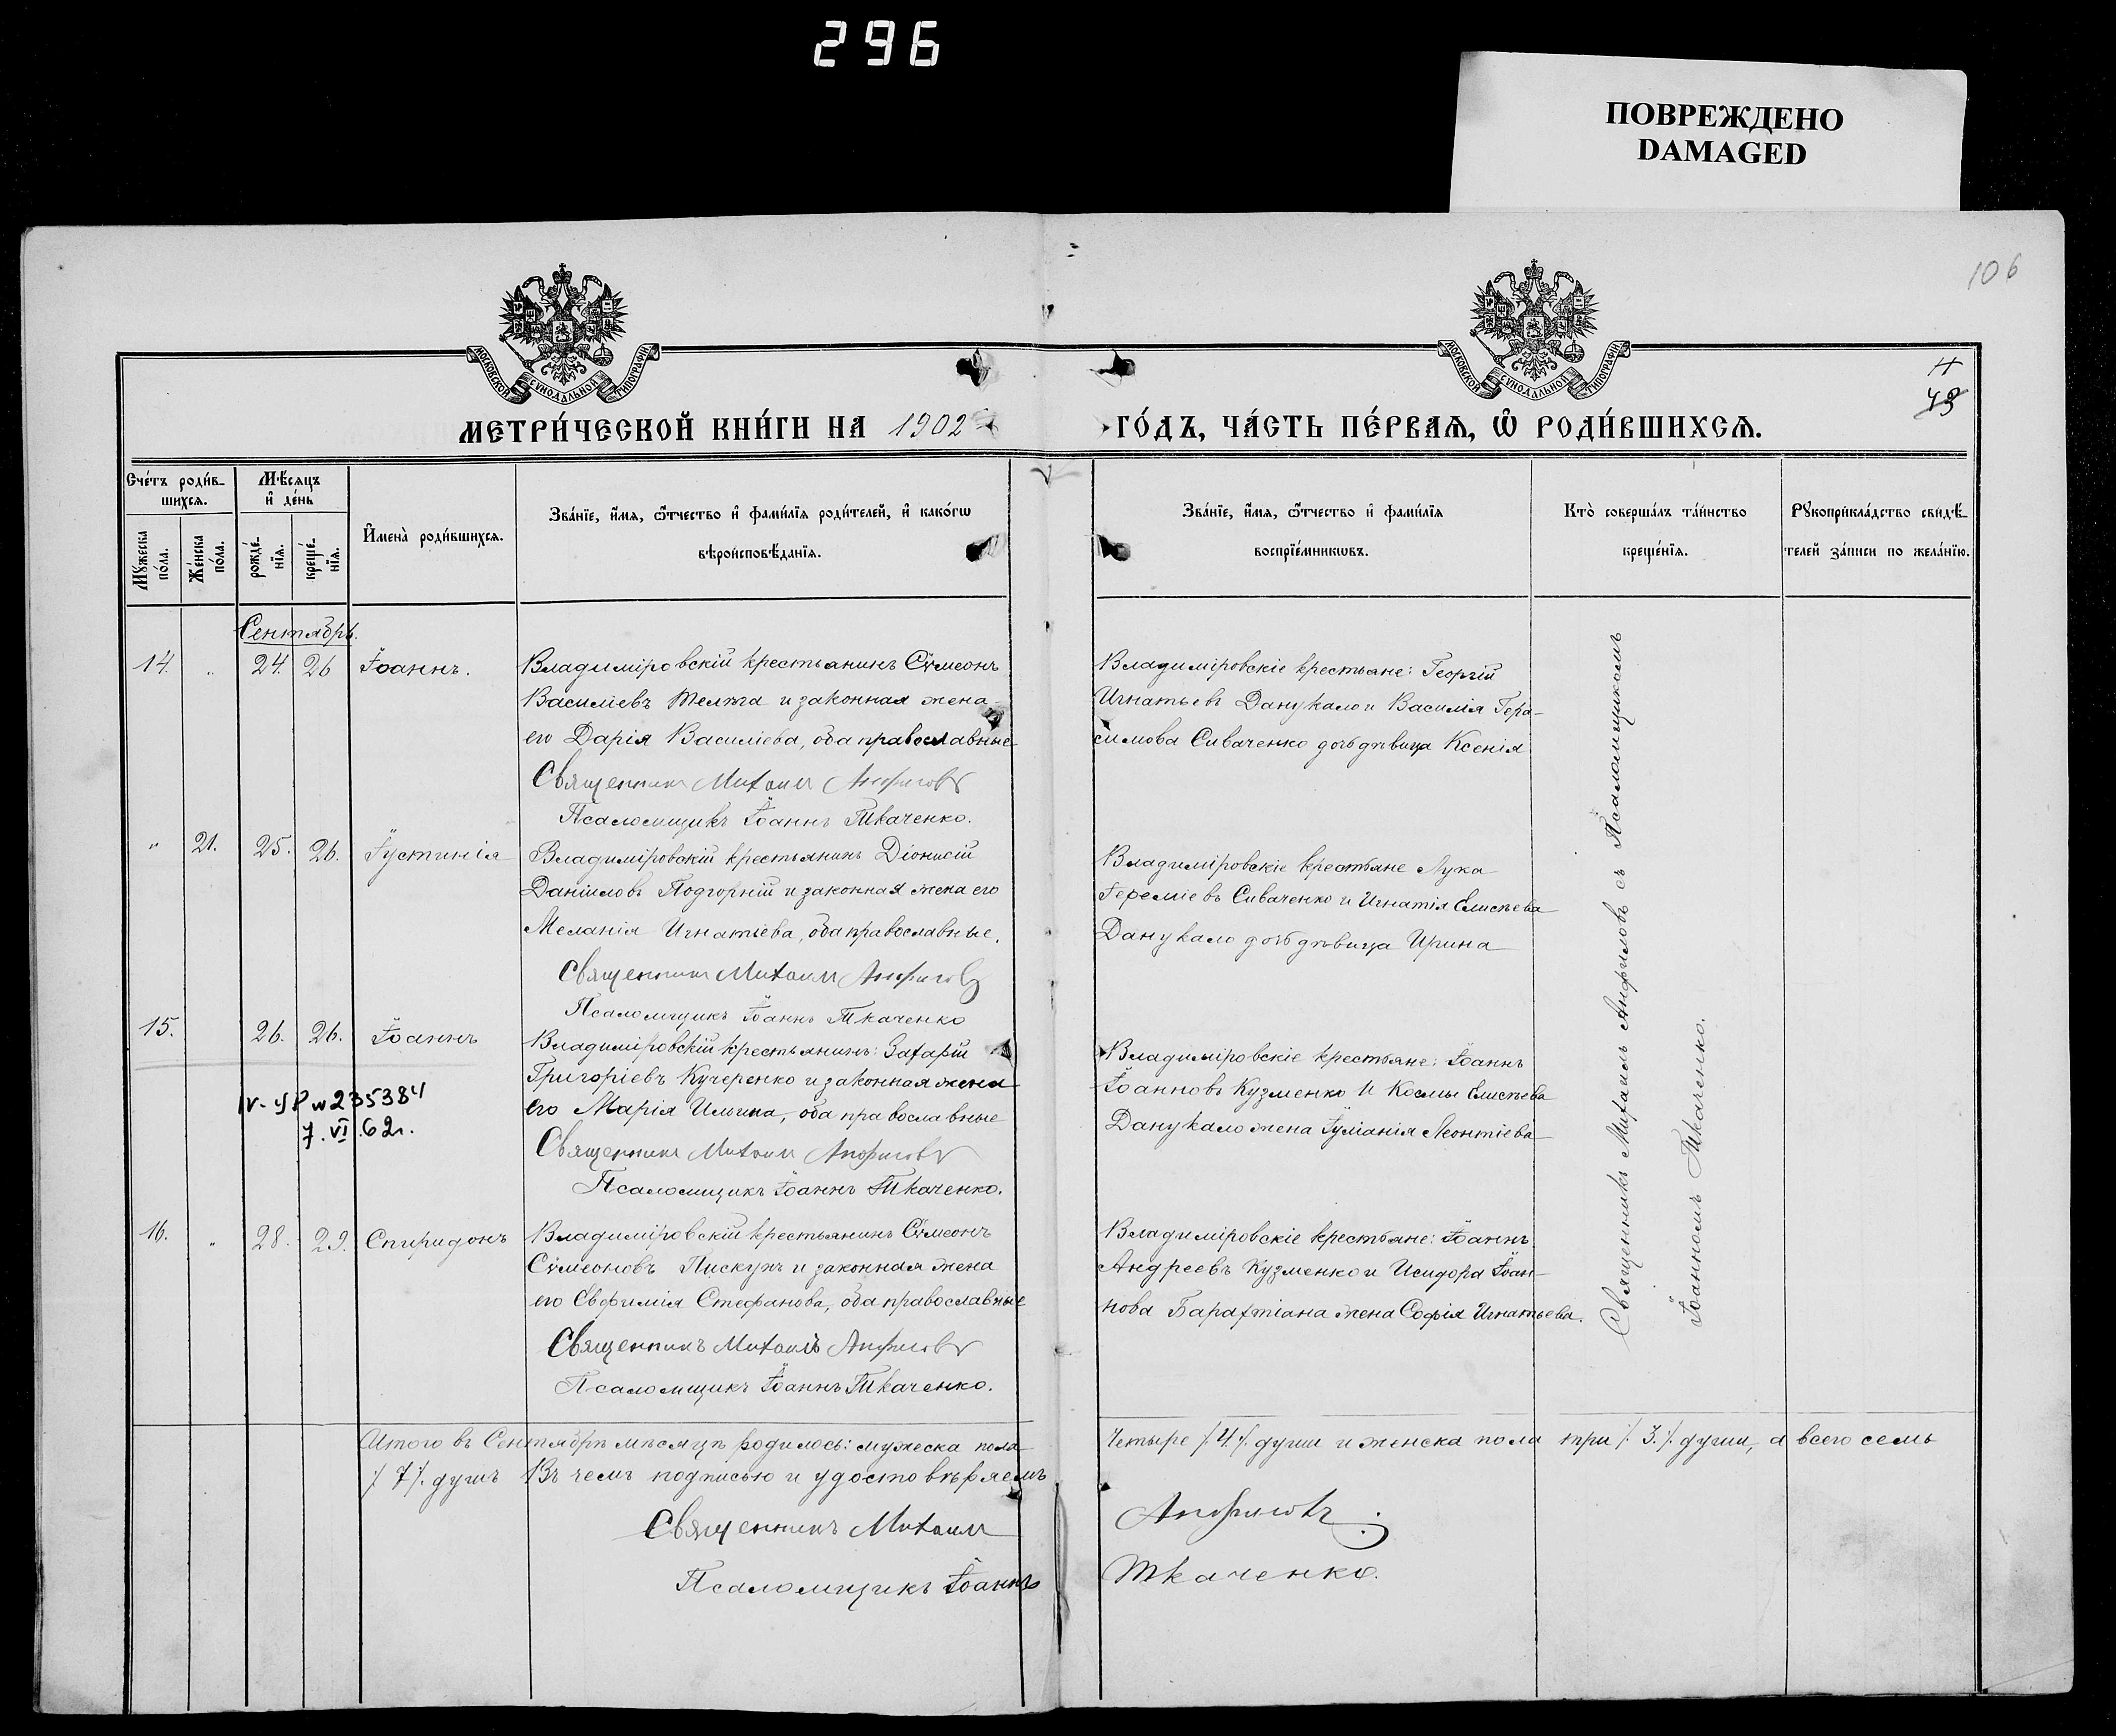 296
ПОВРЕЖДЕНО
DAMAGED
106
МОСКОВСКОЙ СѴНОДАЛЬНОЙ ТИПОГРАФІИ
МОСКОВСКОЙ СѴНОДАЛЬНОЙ ТИПОГРАФІИ
49
МЕТРИ́ЧЕСКОЙ КНИ́ГИ НА 1902
ГО́ДЪ, ЧА́СТЬ ПЕ́РВАѦ, Ѡ РОДИ́ВШИХСѦ.
Сче́тъ роди́в-
шихсѧ.
Мѣ́сяцъ
и҆ де́нь
Мꙋжеска
по́ла.
Же́нска
по́ла.
рожде́-
нїѧ.
креще́-
нїѧ.
И҆мена̀ роди́вшихсѧ.
Зва́нїе, и҆́мѧ, ѻ҆́тчество и҆ фами́лїѧ роди́телей, и҆ како́гѡ
вѣроисповѣ́данїѧ.
Зва́нїе, и҆́мѧ, ѻ҆́тчество и҆ фами́лїѧ
воспрїе́мникѡвъ.
Кто̀ соверша́лъ та́инство
креще́нїѧ.
Рꙋкоприкла́дство свидѣ́-
телей за́писи по жела́нїю.
Сентябрь.
14. " 24. 26 Іоаннъ.
Владиміровскій крестьянинъ Сѵмеонъ
Василіевъ Желта и законная жена
его Дарія Василіева, оба православные
Священникъ Михаилъ Анфиловъ
Псаломщикъ Іоаннъ Ткаченко.
Владиміровскіе крестьяне: Георгій
Игнатьевъ Данукало и Василія Гера-
симова Сиваченко дочь дѣвица Ксенія
" 21. 25. 26. Іустинія
Владиміровскій крестьянинъ Діонисій
Даніиловъ Подгорній и законная жена его
Меланія Игнатіева, оба православные.
Священникъ Михаилъ Анфиловъ
Псаломщикъ Іоаннъ Ткаченко
Владиміровскіе крестьяне Лука
Іереміевъ Сиваченко и Игнатія Елисѣева
Данукало дочь дѣвица Ирина
15. 26. 26. Іоаннъ
Владиміровскій крестьянинъ: Захарій
Григоріевъ Кучеренко и законная жена
его Марія Ильина, оба православные
Священникъ Михаилъ Анфиловъ
Псаломщикъ Іоаннъ Ткаченко.
Владиміровскіе крестьяне: Іоаннъ
Іоанновъ Кузменко и Космы Елисѣева
Данукало жена Іуліанія Леонтіева
235384
7.VI.62г.
16. " 28. 29. Спиридонъ
Владиміровскій крестьянинъ Сѵмеонъ
Сѵмеоновъ Пискунъ и законная жена
его Евфимія Стефанова, оба православные
Священникъ Михаилъ Анфиловъ
Псаломщикъ Іоаннъ Ткаченко.
Владиміровскіе крестьяне: Іоаннъ
Андреевъ Кузменко и Исидора Іоан-
нова Барахтіана жена Софія Игнатьева.
Священникъ Михаилъ Анфиловъ съ Псаломщикомъ
Іоанномъ Ткаченко.
Итого въ Сентябрѣ мѣсяцѣ родилось: мужеска пола четыре /.4./ души и женска пола три /.3./ души, а всего семь
/.7./. душъ Въ чемъ подписью и удостовѣряемъ
Священникъ Михаилъ Анфиловъ.
Псаломщикъ Іоаннъ Ткаченко.